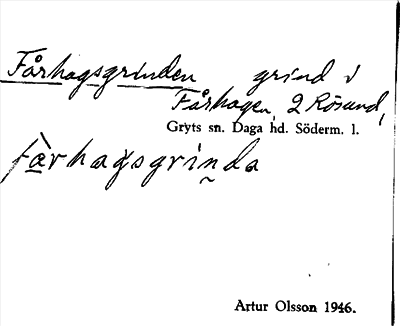 Fårhagsgrinden grind i
Fårhagen, 2 Rösund,
Gryts sn. Daga hd. Söderm. l.
fæ̀rhagsgrinda
Artur Olsson 1946.